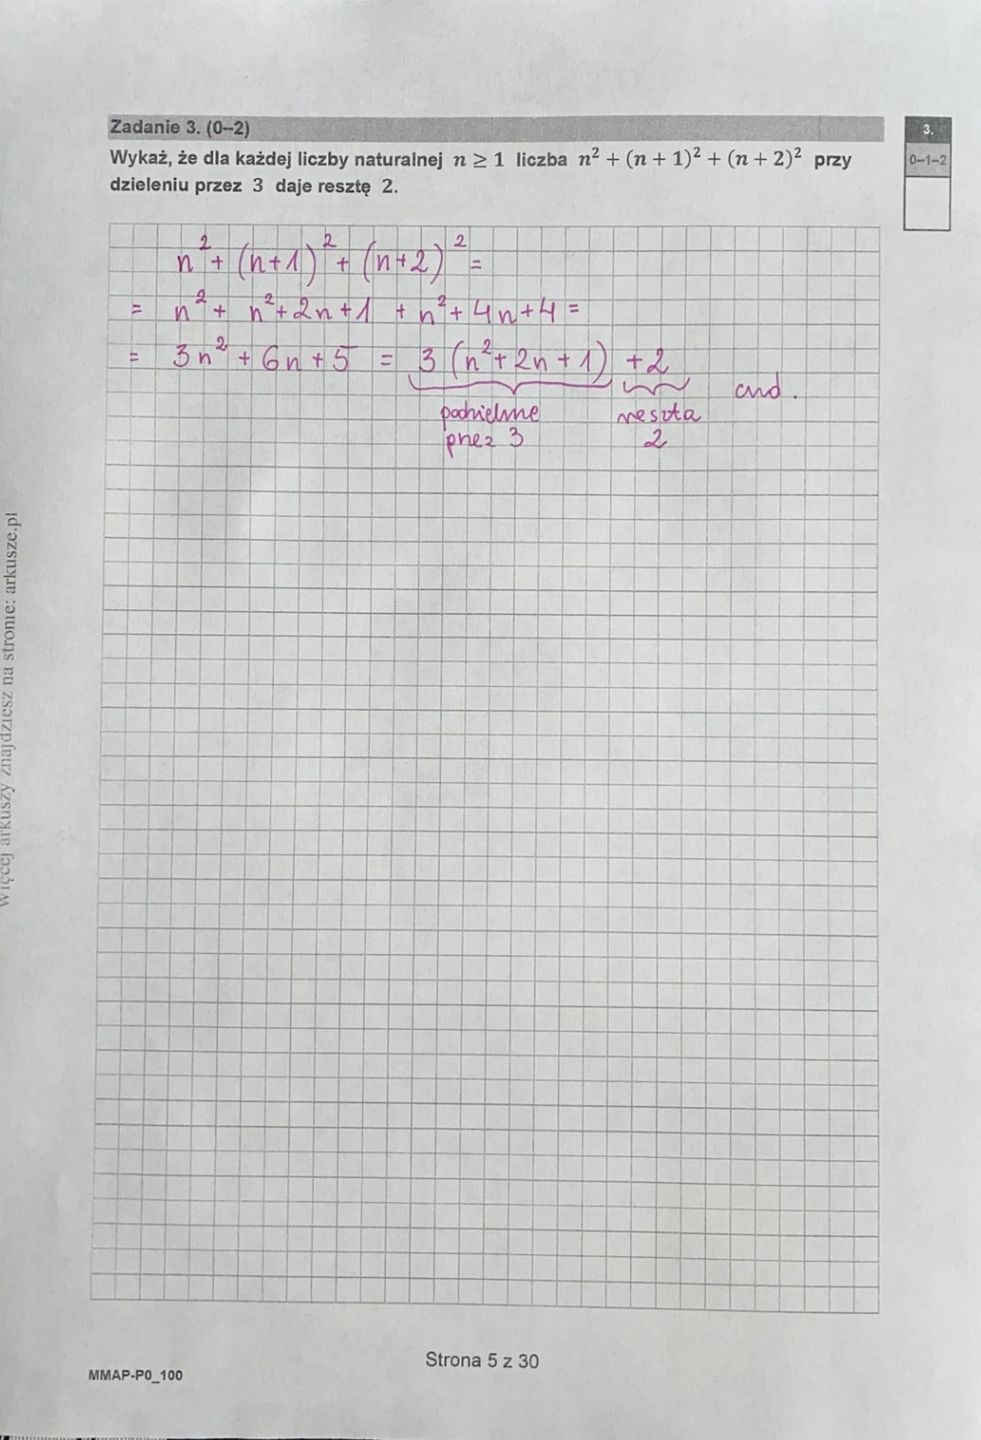 Zadanie 3. (0–2)
3.
Wykaż, że dla każdej liczby naturalnej n ≥ 1 liczba n² + (n + 1)² + (n + 2)² przy
0–1–2
dzieleniu przez 3 daje resztę 2.
n² + (n+1)² + (n+2)² =
= n² + n²+2n+1 + n²+4n+4 =
= 3n² + 6n + 5 = 3 (n²+2n+1) +2
cnd.
podzielne reszta
przez 3 2
Więcej arkuszy znajdziesz na stronie: arkusze.pl
Strona 5 z 30
MMAP-P0_100